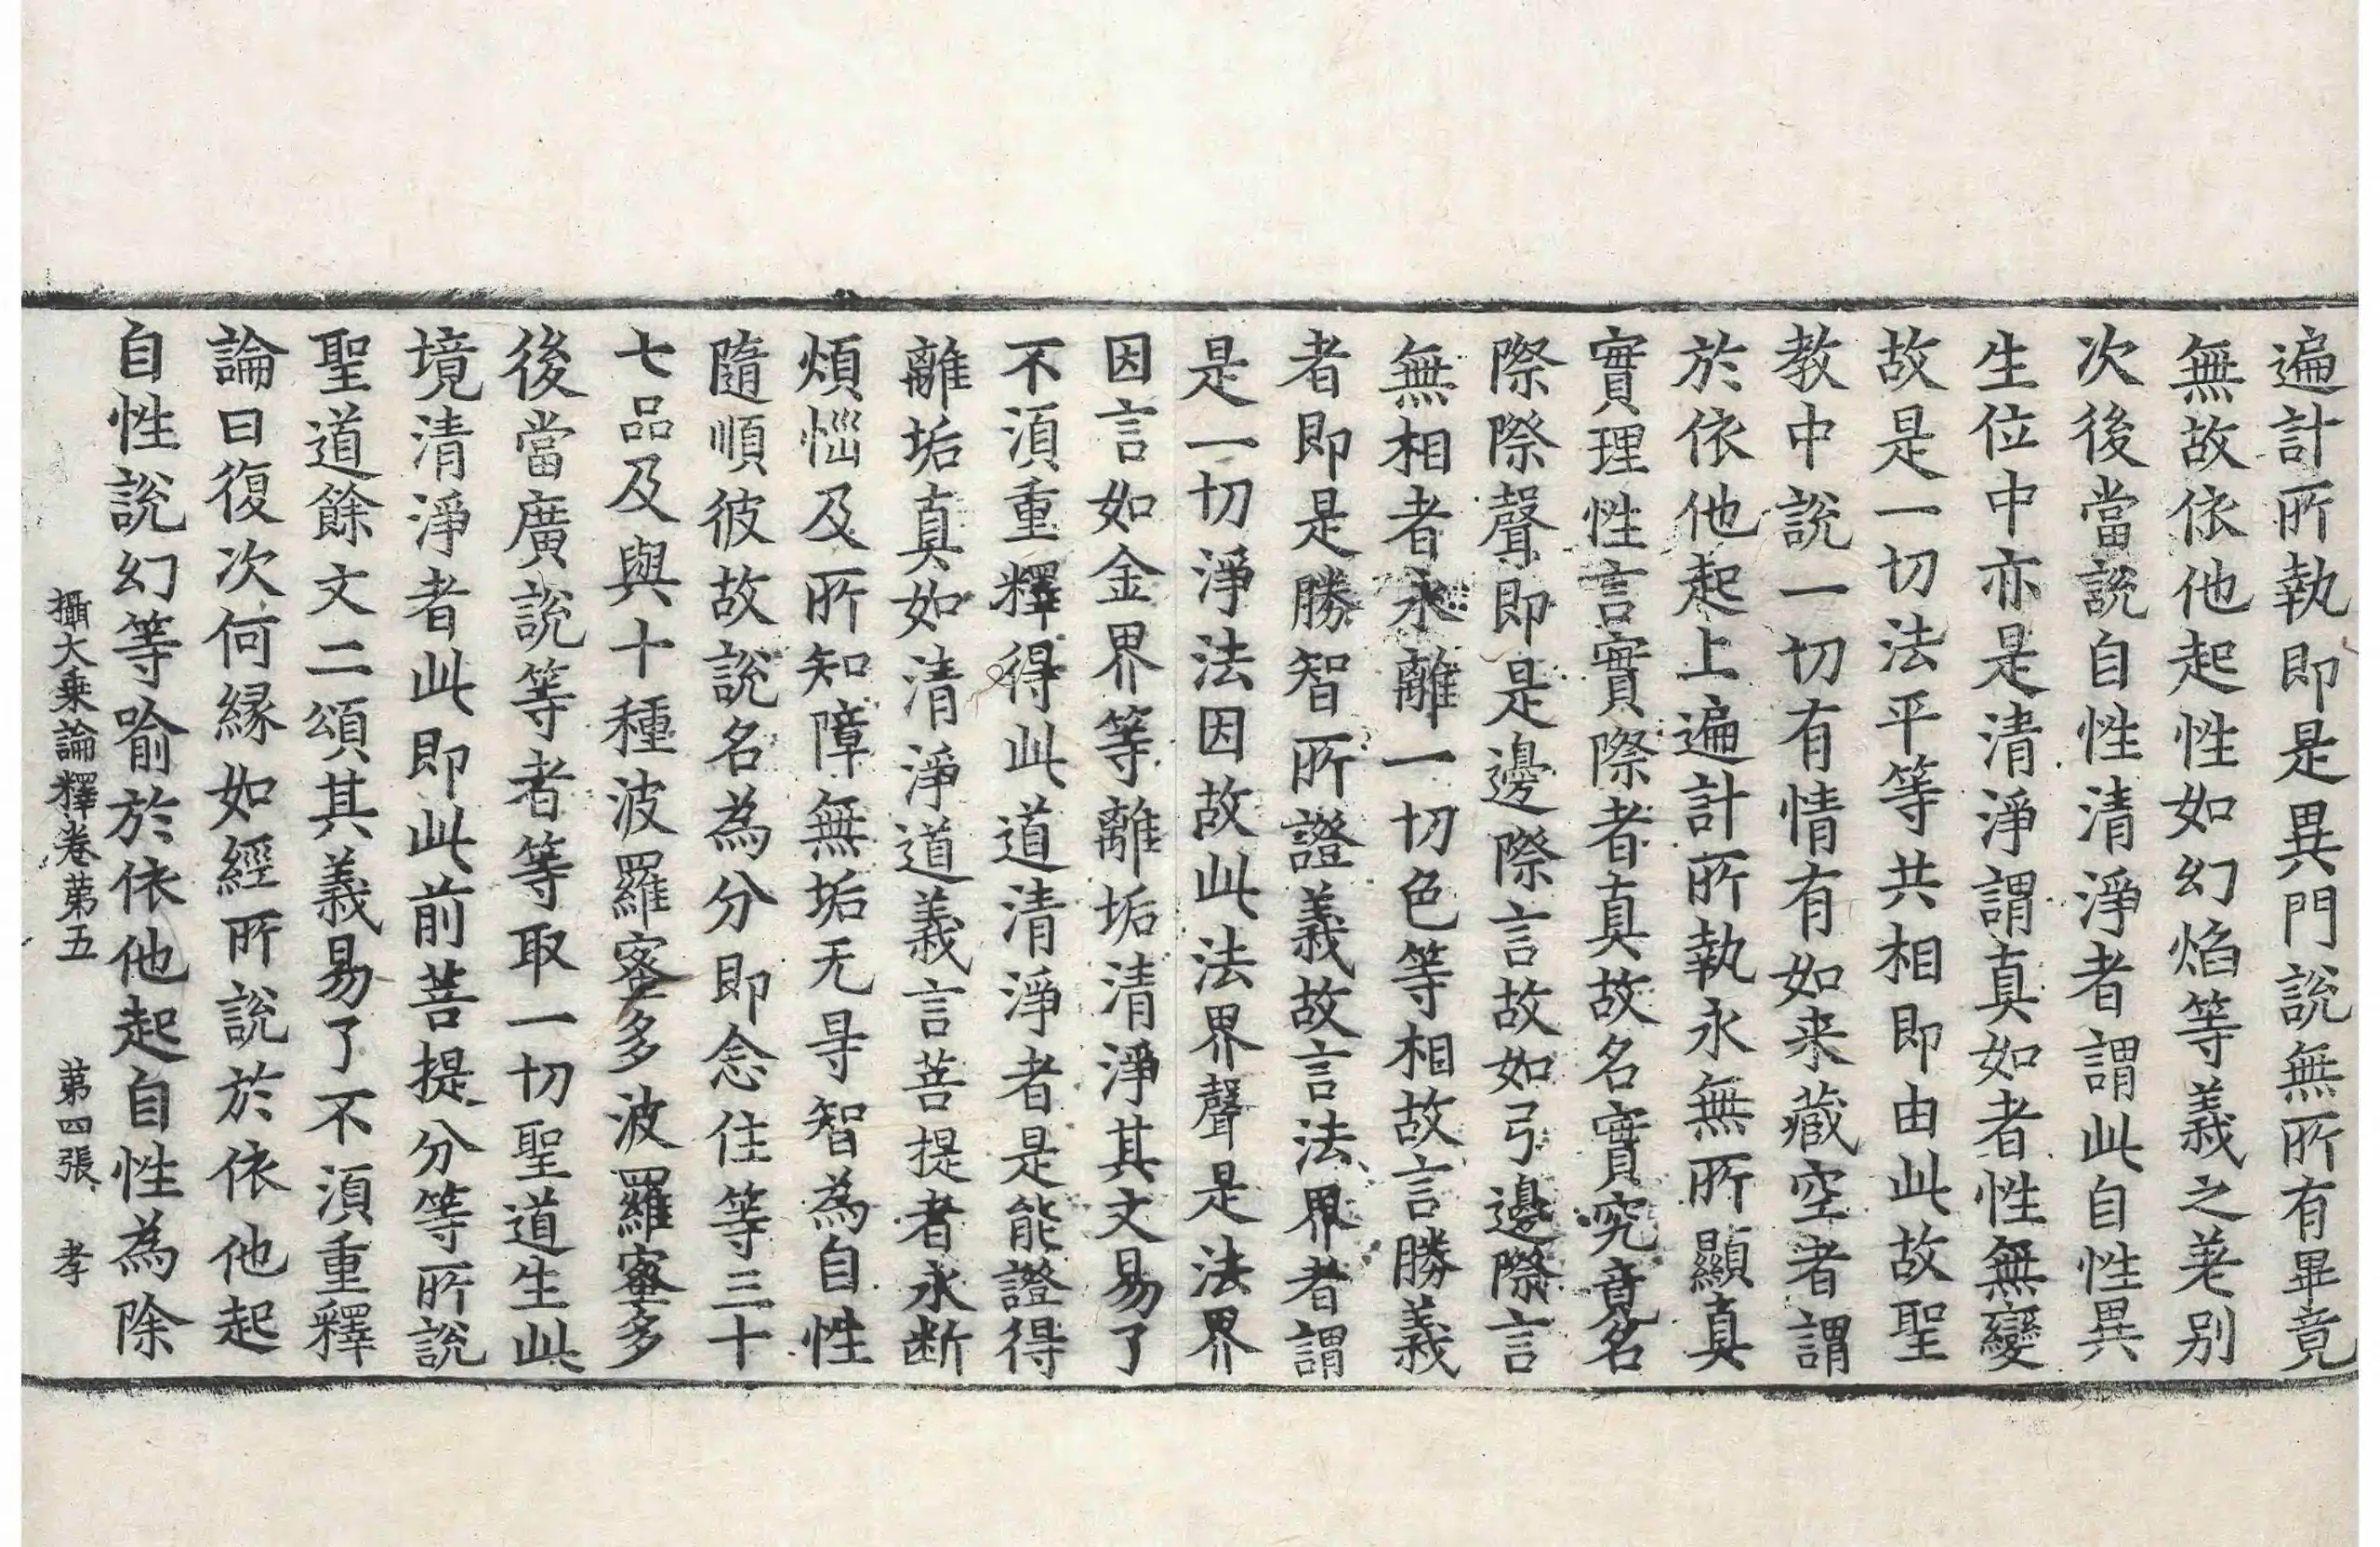 遍計所執即是異門說無所有畢竟
無故依他起性如幻焰等義之差别
次後當說自性清淨者謂此自性異
生位中亦是清淨謂真如者性無變
故是一切法平等共相即由此故聖
教中說一切有情有如来藏空者謂
於依他起上遍計所執永無所顯真
實理性言實際者真故名實究竟名
際際聲即是邊際言故如弓邊際言
無相者永離一切色等相故言勝義
者即是勝智所證義故言法界者謂
是一切淨法因故此法界聲是法界
因言如金界等離垢清淨其文易了
不湏重釋得此道清淨者是能證得
離垢真如清淨道義言菩提者永断
煩惱及所知障無垢无㝵智為自性
隨順彼故說名為分即念住等三十
七品及與十種波羅蜜多波羅蜜多
後當廣說等者等取一切聖道生此
境清淨者此即此前菩提分等所說
聖道餘文二頌其義易了不湏重釋
論曰復次何緣如經所說於依他起
自性說幻等喻於依他起自性為除
攝大乘論釋卷苐五　苐四張　孝